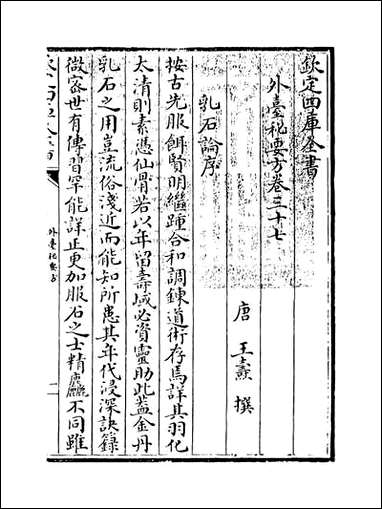 欽定四庫全書
外臺祕要方卷三十七
唐 王燾 撰
乳石論序
按古先服餌賢明繼踵合和調鍊道術存焉詳其羽化
太清則素憑仙骨若以年留壽域必資靈助此蓋金丹
乳石之用豈流俗淺近而能知所患其年代浸深訣籙
微密世有傳習罕能詳正更加服石之士精麤不同雖
外臺祕要方